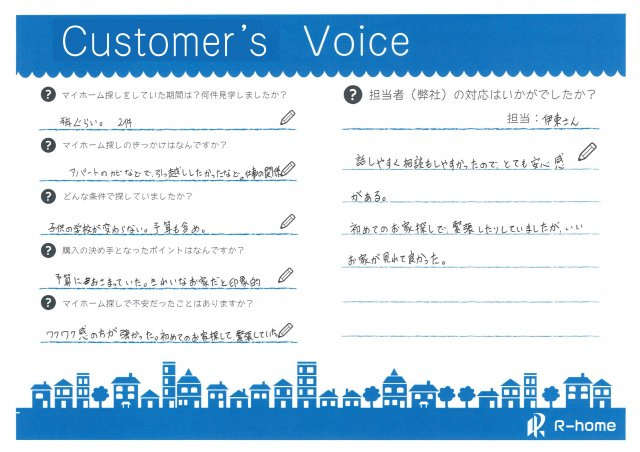 Customer's Voice
? マイホーム探しをしていた期間は？何件見学しましたか？
ぐらい。 2件
? マイホーム探しのきっかけはなんですか？
アパートのカビなどで、引っ越ししたかったなど。仕事の関係
? どんな条件で探していましたか？
子供の学校が変わらない。予算も含め。
? 購入の決め手となったポイントはなんですか？
予算におさまっていた。きれいなお家だと印象的
? マイホーム探しで不安だったことはありますか？
ワクワク感の方が強かった。初めてのお家探しで緊張していた。
? 担当者（弊社）の対応はいかがでしたか？
担当：伊東さん
話しやすく相談もしやすかったので、とても安心感
がある。
初めてのお家探しで、緊張したりしていましたが、いい
お家が見れて良かった。
R-home